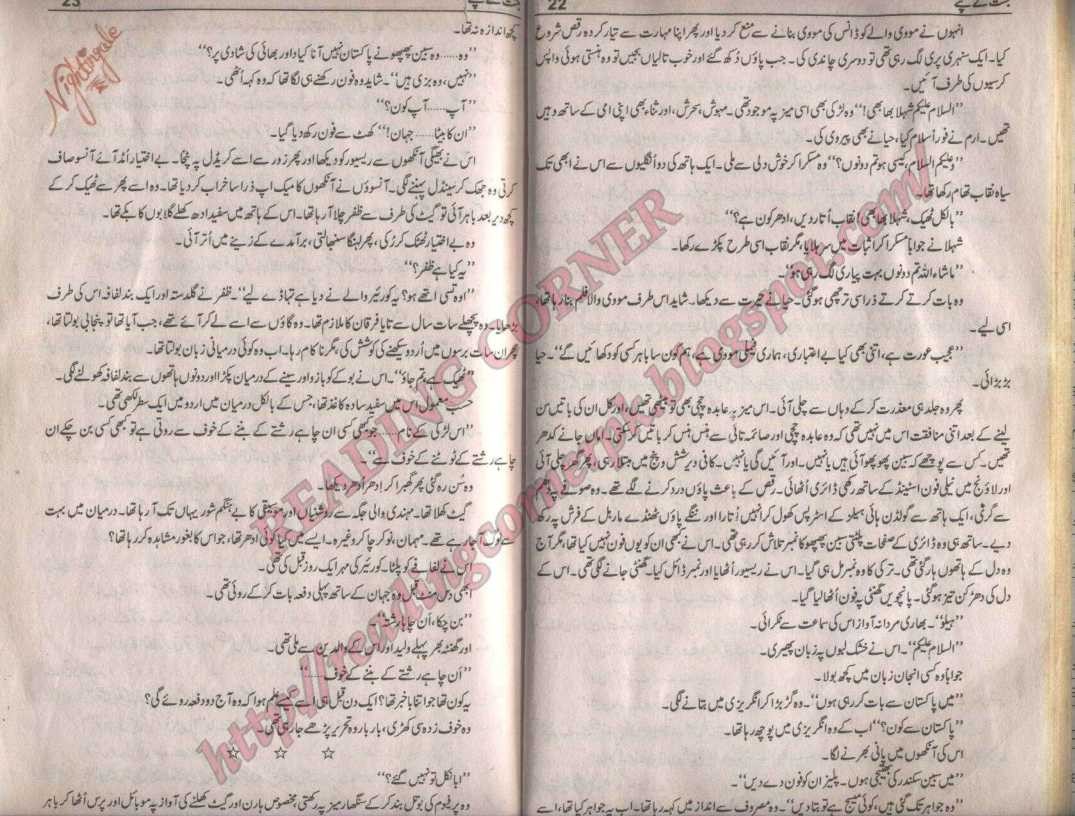 22
جنت کے پتے
انہوں نے مووی والے کو ڈانس کی مووی بنانے سے منع کر دیا اور پھر اپنا مہارت سے تیار کردہ رقص شروع
کیا۔ ایک سنہری پری لگ رہی تھی تو دوسری چاندی کی۔ جب پاؤں دُکھ گئے اور خوب تالیاں بجیں تو وہ ہنستی ہوئی واپس
کرسیوں کی طرف آئیں۔
”السلام علیکم شہلا بھابھی!“ وہ لڑکی بھی اسی میز پہ موجود تھی۔ مہوش، سحرش، اور ثناء بھی اپنی امی کے ساتھ وہیں
تھیں۔ ارم نے فوراً سلام کیا، حیا نے بھی پیروی کی۔
”وعلیکم السلام، کیسی ہو تم دونوں؟“ وہ مسکرا کر خوش دلی سے ملی۔ ایک ہاتھ کی دو انگلیوں سے اس نے ابھی تک
سیاہ نقاب تھام رکھا تھا۔
”بالکل ٹھیک، شہلا بھابھی! نقاب اُتار دیں، ادھر کون ہے؟“
شہلا نے جواباً مسکرا کر اثبات میں سر ہلایا، مگر نقاب اسی طرح پکڑے رکھا۔
”ماشاء اللہ تم دونوں بہت پیاری لگ رہی ہو“۔
وہ بات کرتے کرتے ذرا سی ترچھی ہو گئی۔ حیا نے حیرت سے دیکھا۔ شاید اس طرف مووی والا فلم بنا رہا تھا،
اسی لیے۔
”عجیب عورت ہے، اتنی بھی کیا بے اعتباری، ہماری فیملی مووی ہے، ہم کون سا باہر کسی کو دکھائیں گے“۔ حیا
بڑبڑائی۔
پھر وہ جلد ہی معذرت کر کے وہاں سے چلی آئی۔ اس میز پہ عابدہ چچی بھی تو بیٹھی تھیں، اور کل ان کی باتیں سن
لینے کے بعد اتنی منافقت اس میں نہیں تھی کہ وہ عابدہ چچی اور صائمہ تائی سے ہنس ہنس کر باتیں کر سکتی۔ اماں جانے کدھر
تھیں۔ کس سے پوچھے کہ سبین پھوپھو آئی ہیں یا نہیں۔ اور آئیں گی یا نہیں۔ کافی دیر شش و پنج میں مبتلا رہی، پھر گھر چلی آئی
اور لاؤنج میں ٹیلی فون اسٹینڈ کے ساتھ رکھی ڈائری اُٹھائی۔ رقص کے باعث پاؤں درد کرنے لگے تھے۔ وہ صوفے پہ دھم
سے گرتی، ایک ہاتھ سے گولڈن ہائی ہیلز کے اسٹرپس کھول کر انہیں اُتارا اور ننگے پاؤں ٹھنڈے ماربل کے فرش پہ رکھ
دیے۔ ساتھ ہی وہ ڈائری کے صفحات پلٹتی سبین پھپھو کا نمبر تلاش کر رہی تھی۔ اس نے کبھی ان کو یوں فون نہیں کیا تھا، مگر آج
وہ دل کے ہاتھوں ہار گئی تھی۔ ترکی کا وہ نمبر مل ہی گیا۔ اس نے ریسیور اُٹھایا اور نمبر ڈائل کیا۔ گھنٹی جانے لگی تھی۔ اس کے
دل کی دھڑکن تیز ہو گئی۔ پانچویں گھنٹی پہ فون اُٹھا لیا گیا۔
”ہیلو“۔ بھاری مردانہ آواز اس کی سماعت سے ٹکرائی۔
”السلام علیکم“۔ اس نے خشک لبوں پہ زبان پھیری۔
جواباً وہ کسی انجان زبان میں کچھ بولا۔
”میں پاکستان سے بات کر رہی ہوں“۔ وہ گڑبڑا کر انگریزی میں بتانے لگی۔
”پاکستان سے کون؟“ اب کے وہ انگریزی میں پوچھ رہا تھا۔
اس کی آنکھوں میں پانی بھرنے لگا۔
”میں سبین سکندر کی بھتیجی ہوں۔ پلیز ان کو فون دے دیں“۔
”وہ جواہر تک گئی ہیں، کوئی میسج ہے تو بتا دیں“۔ وہ مصروف سے انداز میں کہہ رہا تھا۔ اب یہ جواہر کیا تھا، اسے
23
جنت کے پتے
Nightingale
کچھ اندازہ نہ تھا۔
”وہ..... وہ سبین پھپھو نے پاکستان نہیں آنا کیا داور بھائی کی شادی پر؟“
”نہیں، وہ بزی ہیں“۔ شاید وہ فون رکھنے ہی لگا تھا کہ وہ کہہ اُٹھی۔
”آپ..... آپ کون؟“
”ان کا بیٹا..... جہان!“ کھٹ سے فون رکھ دیا گیا۔
اس نے بھیگی آنکھوں سے ریسیور کو دیکھا اور پھر زور سے اسے کریڈل پہ پٹخا۔ بے اختیار اُمڈ آئے آنسو صاف
کرتی وہ جھک کر سینڈل پہننے لگی۔ آنسوؤں نے آنکھوں کا میک اپ ذرا سا خراب کر دیا تھا۔ وہ اسے پھر سے ٹھیک کر کے
کچھ دیر بعد باہر آئی تو گیٹ کی طرف سے ظفر چلا آ رہا تھا۔ اس کے ہاتھ میں سفید ادھ کھلے گلابوں کا بکے تھا۔
وہ بے اختیار ٹھٹک کر رُکی، پھر لہنگا سنبھالتی، برآمدے کے زینے میں اُتر آئی۔
”یہ کیا ہے ظفر؟“
”اوہ تسی اتھے ہو؟ یہ کورئیر والے نے دیا ہے تہاڈے لیے“۔ ظفر نے گلدستہ اور ایک بند لفافہ اس کی طرف
بڑھایا۔ وہ پچھلے سات سال سے تایا فرقان کا ملازم تھا۔ وہ گاؤں سے اسے لے کر آئے تھے، جب آیا تھا تو پنجابی بولتا تھا،
پھر ان سات برسوں میں اُردو سیکھنے کی کوشش کی، مگر ناکام رہا۔ اب وہ کوئی درمیانی زبان بولتا تھا۔
”ٹھیک ہے، تم جاؤ“۔ اس نے بوکے کو بازو اور سینے کے درمیان پکڑا اور دونوں ہاتھوں سے بند لفافہ کھولنے لگی۔
حسب معمول اس میں سفید سادہ کاغذ تھا، جس کے بالکل درمیان میں اردو میں ایک سطر لکھی تھی۔
”اس لڑکی کے نام..... جو کبھی کسی ان چاہے رشتے کے بننے کے خوف سے روتی ہے تو کبھی کسی بن چکے ان
چاہے رشتے کے ٹوٹنے کے خوف سے“۔
وہ سن رہ گئی پھر گھبرا کر ادھر اُدھر دیکھا۔
گیٹ کھلا تھا۔ مہندی والی جگہ سے روشنیاں اور موسیقی کا بے ہنگم شور یہاں تک آ رہا تھا۔ درمیان میں بہت
سے لوگ آ جا رہے تھے۔ مہمان، نوکر چاکر وغیرہ۔ ایسے میں کیا کوئی ادھر تھا، جو اس کا بغور مشاہدہ کر رہا تھا؟
اس نے لفافے کو پلٹا۔ کورئیر کی مہر ایک روز قبل کی تھی۔
ابھی دس منٹ قبل وہ جہان کے ساتھ پہلی دفعہ بات کر کے روئی تھی۔
”بن چکا، اَن چاہا رشتہ“۔
اور گھنٹہ بھر پہلے ولید اور اس کے والدین سے ملی تھی۔
”اَن چاہے رشتے کے بننے کے خوف.....“
یہ کون تھا جو اتنا باخبر تھا؟ ایک دن قبل ہی اسے کیسے علم ہوا کہ وہ آج دو دفعہ روئے گی؟
وہ خوف زدہ سی کھڑی، بار بار وہ تحریر پڑھے جا رہی تھی۔
☆ ☆ ☆
”ابا نکل تو نہیں گئے؟“
وہ پرفیوم کی بوتل بند کر کے سنگھار میز پہ رکھتی مخصوص ہارن اور گیٹ کھلنے کی آواز پہ موبائل اور پرس اُٹھا کر باہر
READING CORNER
http://readingcornerpk.blogspot.com